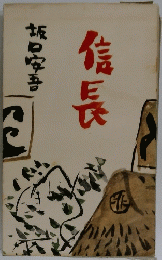 信長
坂口安吾